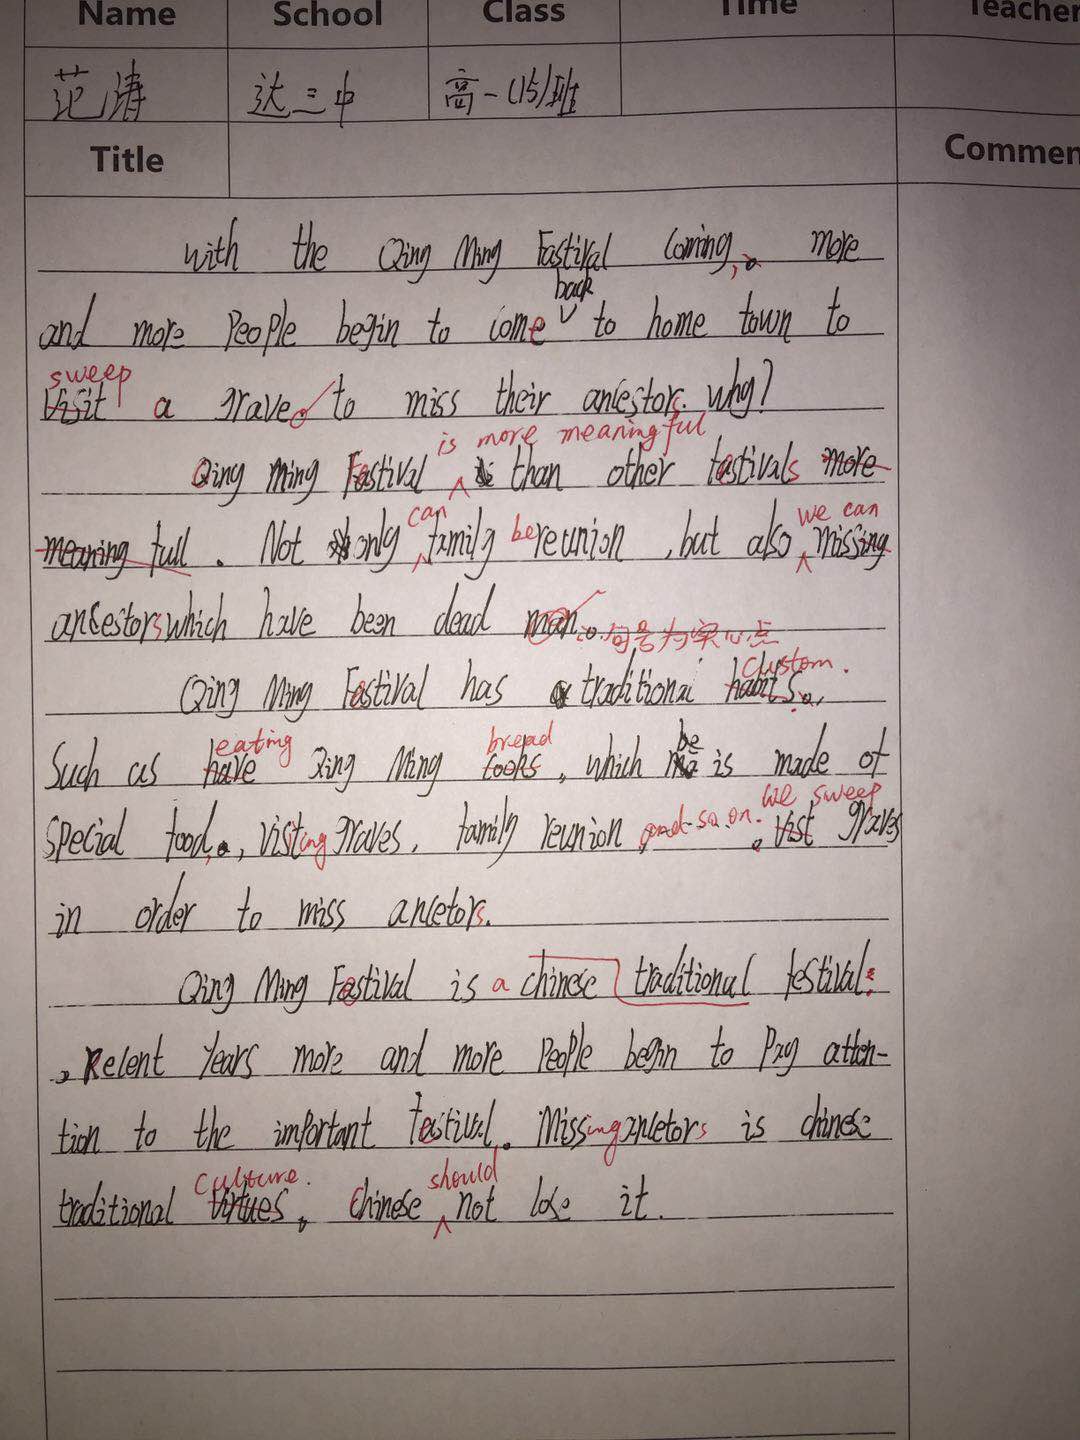 Name School Class Time Teacher
范涛 达三中 高一(15)班
Title Commen
with the Qing Ming Fastival coming, more
back
and more People begin to come to home town to
sweep
visit a grave. to miss their ancestors. why?
is more meaningful
Qing Ming Festival is than other festivals more
can we can
meaning full. Not only family be reunion, but also missing
ancestors which have been dead man.
句号为实心点
custom.
Qing Ming Festival has a traditional habits.
eating bread be
Such as have Qing Ming foods, which is made of
we sweep
special food., visting graves, family reunion and so on. vist graves
in order to miss ancetors.
Qing Ming Festival is a chinese traditional festival.
, Recent Years more and more People begin to Pay atten-
tion to the important festival. Missing ancetors is chinese
culture. should
traditional virtues, chinese not lose it.